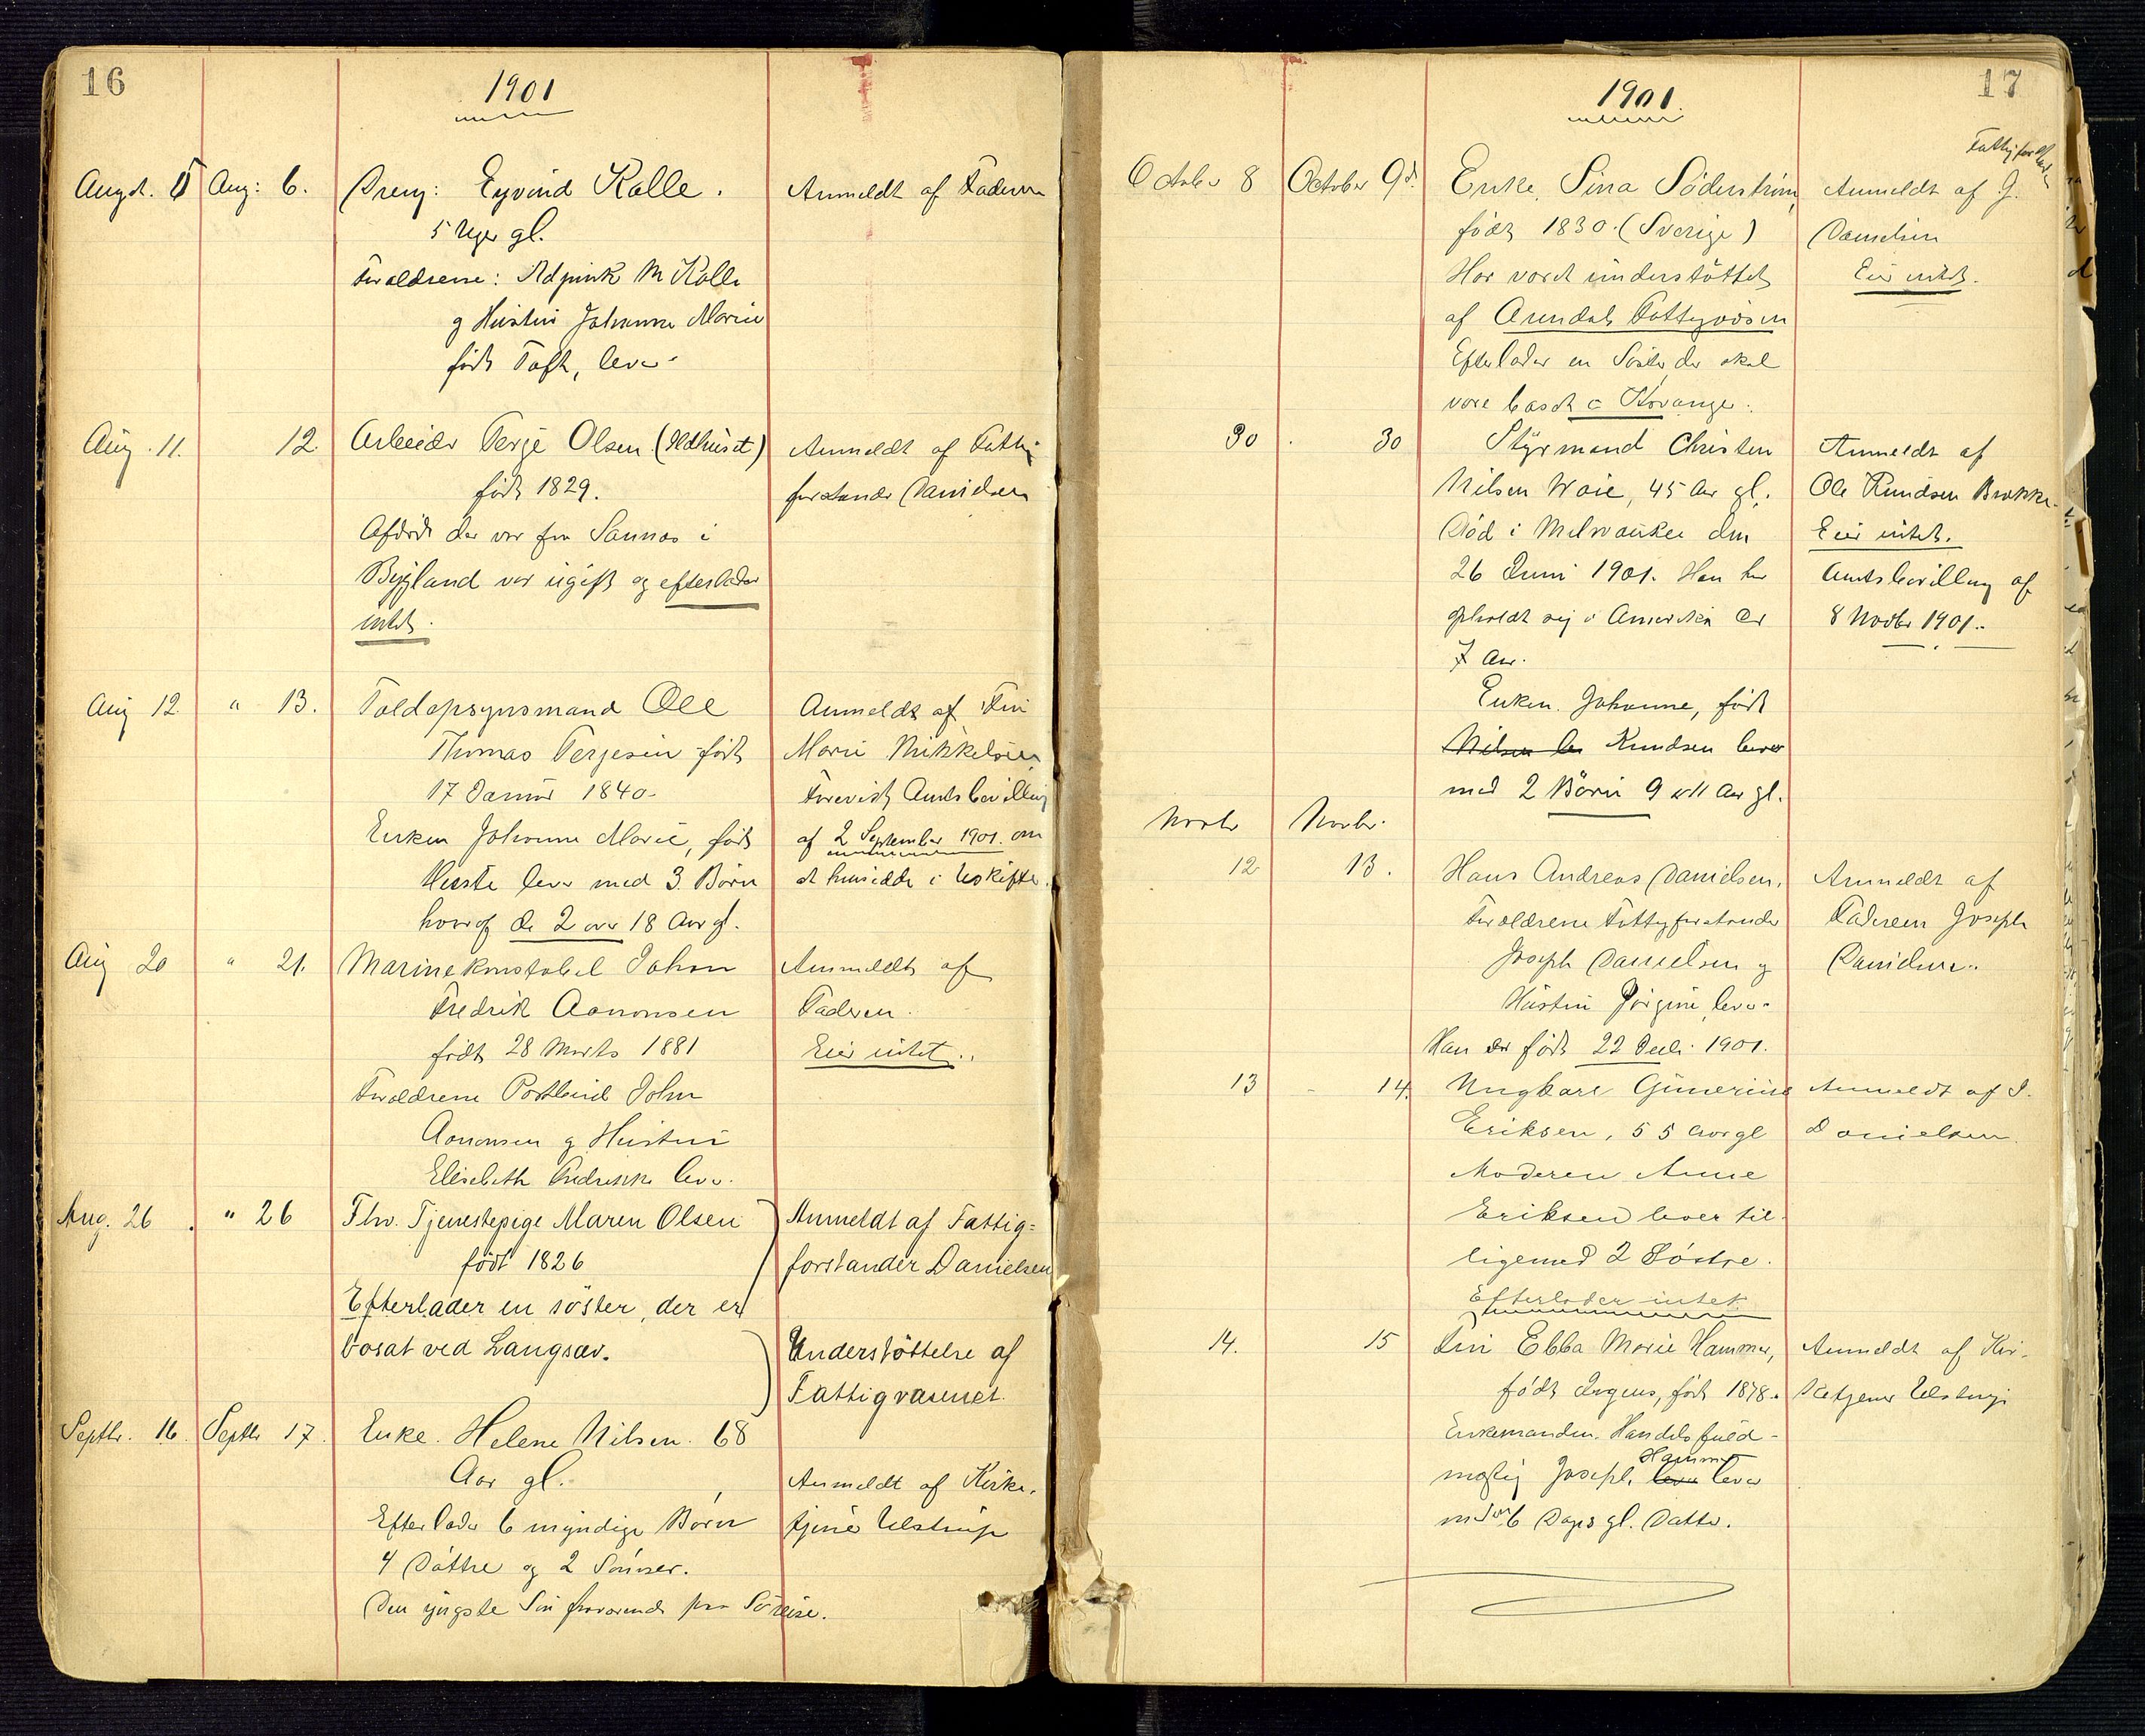 16
1901
Augst. 5 Aug: 6. Dreng: Eyvind Kalle. Anmeldt af Faderen
5 Uger gl.
Forældrene: Adjunkt M Kalle
g Hustru Johanne Marie
født Toft, lever
Aug. 11. 12. Arbeider Terje Olsen (Ildhuset) Anmeldt af Fattig
født 1829. forstander Danielsen
Afdøde der var fra Sannes i
Bygland var ugift og efterlader
intet.
Aug 12 " 13. Toldopsynsmand Ole Anmeldt af Fru
Thomas Terjesen født Marie Mikkelsen
17 Januar 1840. Forevist Amtsbevilling
Enken Johanne Marie, født af 2 September 1901. om
lever med 3 Børn at hensidde i Uskifte.
hvoraf de 2 over 18 Aar gl.
Aug 20 " 21. Marinekonstabel Johan Anmeldt af
Fredrik Aanonsen Faderen.
født 28 Marts 1881 Eier intet.
Forældrene Postbud John
Aanonsen g Hustru
Elisebeth Fredrikke lever.
Aug. 26 " 26 Fhv. Tjenestepige Maren Olsen Anmeldt af Fattig=
født 1826 forstander Danielsen
Efterlader en söster, der er
bosat ved Langsæv. Understöttelse af
Fattigvæsenet.
Septbr. 16. Septbr 17. Enke. Helene Nilsen. 68
Aar gl. Anmeldt af Kirke.
Efterlader 6 myndige Børn tjener Ulstrup
4 Döttre og 2 Sönner.
Den yngste Sön fraværende paa Söreise.
17
1901.
Fattigforstander
October 8 October 9d. Enke, Sina Söderström, Anmeldt af J.
født 1830. (Sverige) Danielsen
Har været understöttet Eier intet.
af Arendals Fattigvæsen
Efterlader en Söster der skal
være bosat
30 . 30 Styrmand Christen Anmeldt af
Nilsen Waie, 45 Aar gl. Ole Knudsen Brokke.
Död i Milwaukee den Eier intet.
26 Juni 1901. Han har Amtsbevilling af
opholdt sig i Amerika ca 8 Novbr 1901.
7 Aar.
Enken. Johanne, født
Nilsen lev Knudsen lever
med 2 Börn 9 & 11 Aar gl.
Novbr Novbr.
12 13. Hans Andreas Danielsen, Anmeldt af
Forældrene Fattigforstander Faderen Joseph
Joseph Danielsen g Danielsen.
Hustru Jörgine, lever.
Han er født 22 Juli 1901.
13 - 14. Ungkarl Gunerius Anmeldt af J.
Eriksen, 55 Aar gl Danielsen.
Moderen Anne
Eriksen lever til
ligemed 2 Söstre.
Efterlader intet.
14. 15 Fru Ebba Marie Hammer, Anmeldt af Kir-
født født 1878. ketjener Ulstrup
Enkemanden. Handelsfuld-
mægtig Joseph lever Hammer lever
med en 6 Dages gl. Datter.